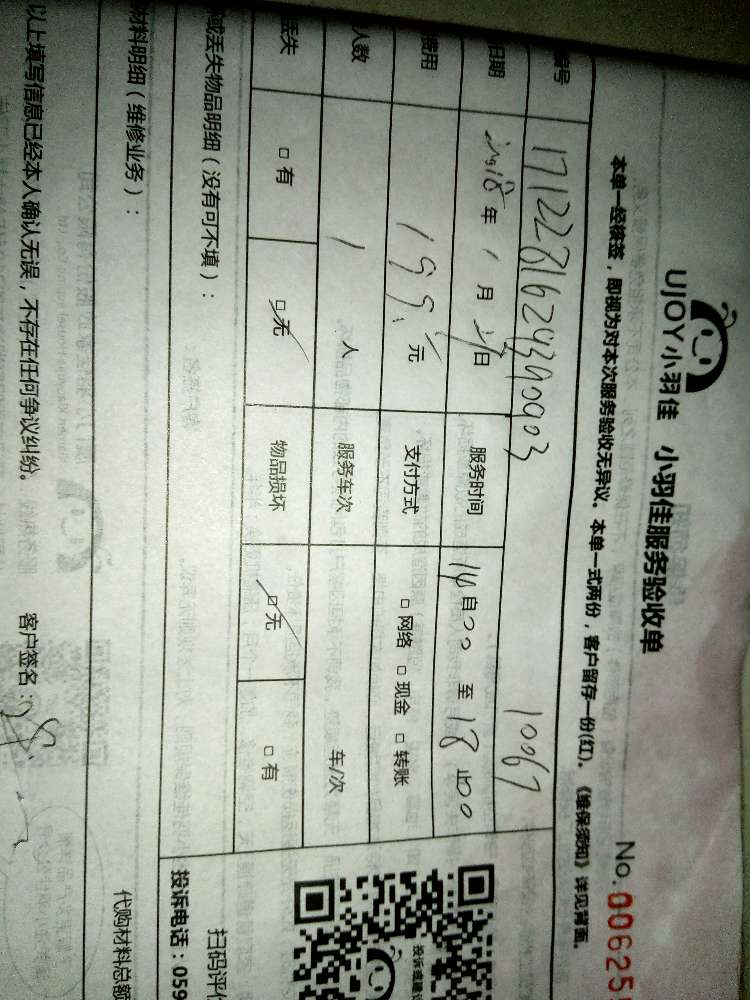 UJOY小羽佳 小羽佳服务验收单
No.00625
本单一经核签，即视为对本次服务验收无异议。本单一式两份，客户留存一份(红)。《维保须知》详见背面。
编号 10067
日期 2018年1月 日 服务时间 14 自00 至 18 止00
费用 199 元 支付方式 □ 网络 □ 现金 □ 转账
人数 1 人 服务车次 车/次
丢失 □ 有 □ 无 物品损坏 □ 无 □ 有
或丢失物品明细（没有可不填）：
材料明细（维修业务）：
以上填写信息已经本人确认无误，不存在任何争议纠纷。 客户签名：
扫码评价
投诉电话：059
代购材料总额